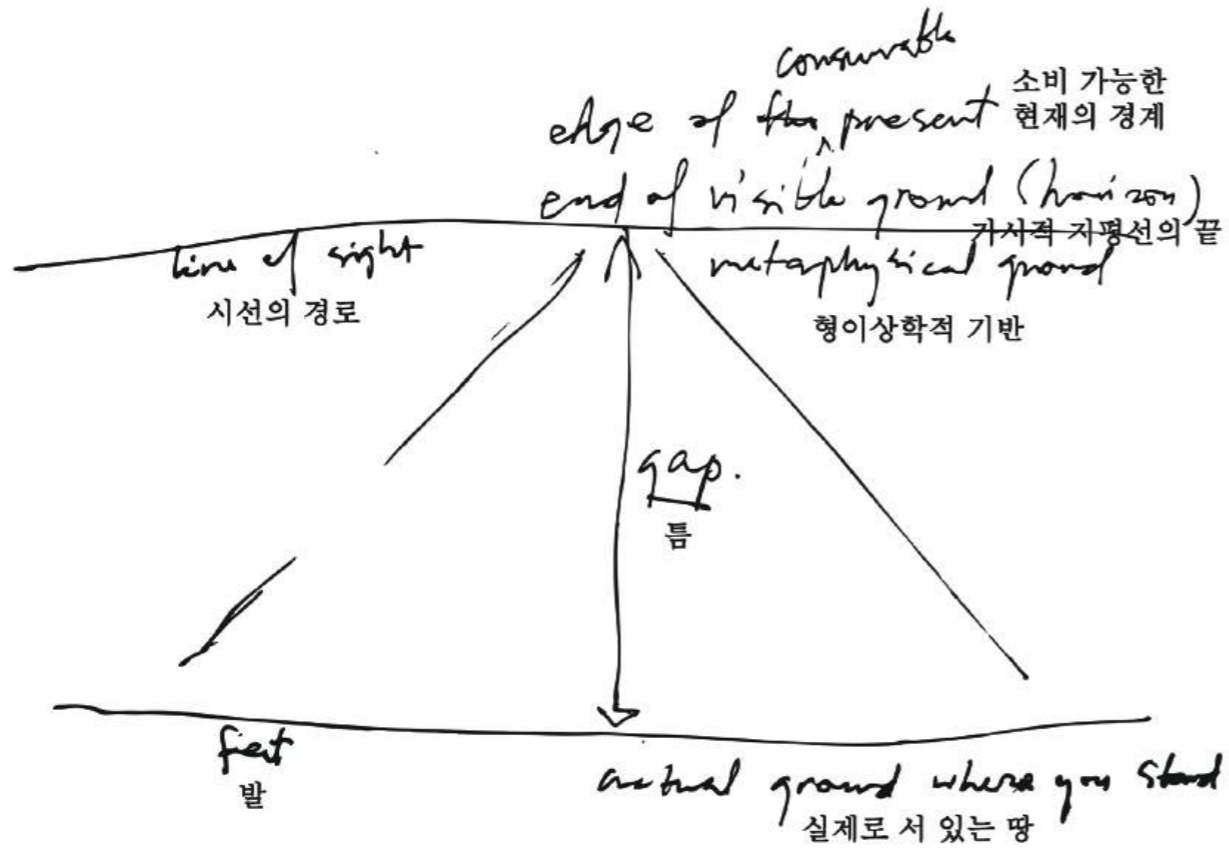 consumable
edge of the present
소비 가능한
현재의 경계
end of visible ground (horizon)
가시적 지평선의 끝
line of sight
시선의 경로
metaphysical ground
형이상학적 기반
gap.
틈
feet
발
actual ground where you stand
실제로 서 있는 땅